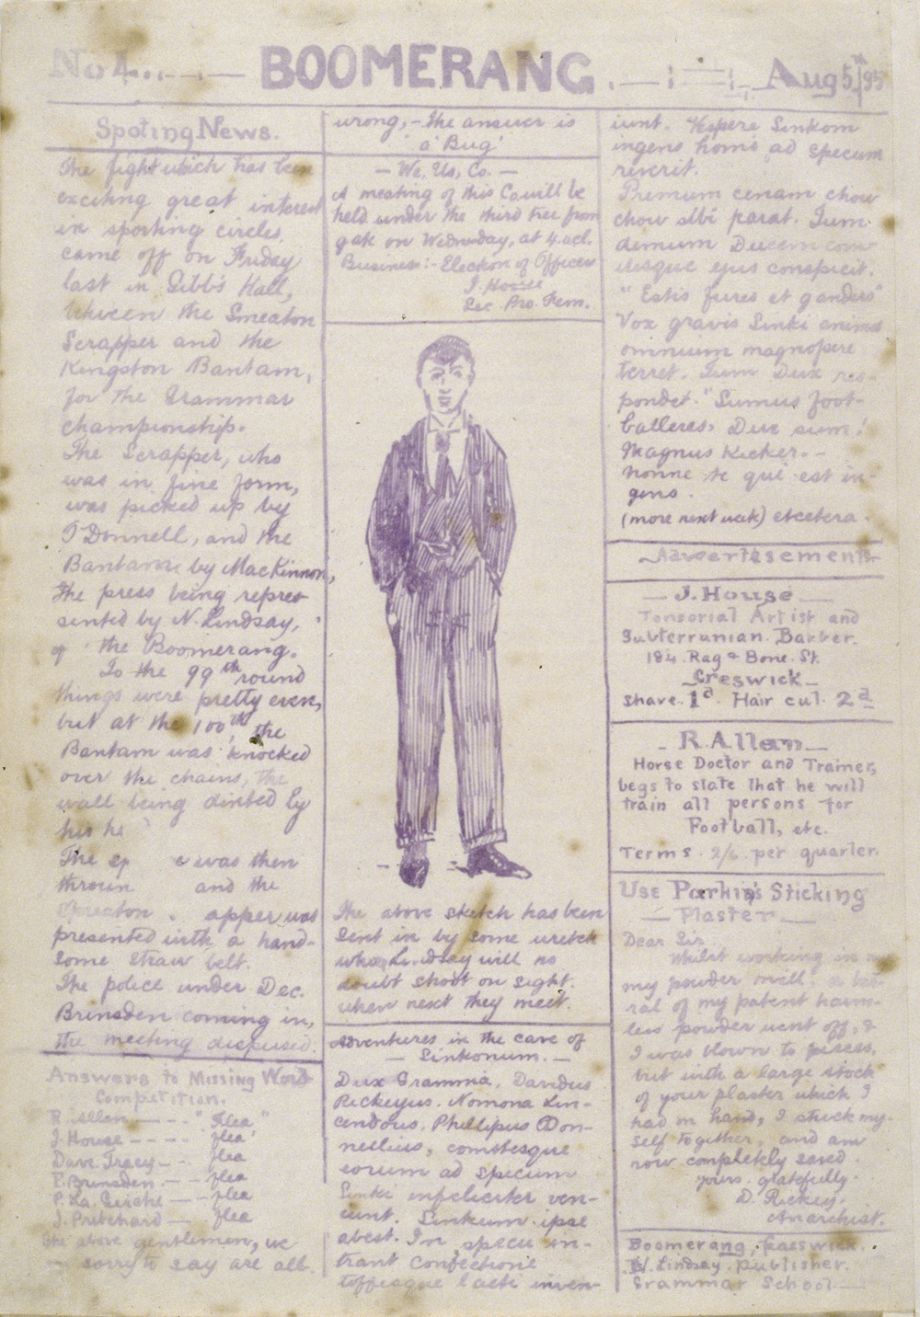 No 4.
BOOMERANG
Aug 5th/95
Spoting News.
The fight which has been
exciting great interest
in sporting circles,
came off on Friday
last in Gibb's Hall,
between the Smeaton
Scrapper and the
Kingston Bantam,
for the Grammar
championship.
The Scrapper, who
was in fine form,
was picked up by
O'Donnell, and the
Bantam by MacKinnon,
the press being repres-
sented by N. Lindsay,
of the Boomerang.
To the 99th round
things were pretty even,
but at the 100th, the
Bantam was knocked
over the chains, the
wall being dinted by
his he
The sp was then
thrown and the
Smeaton apper was
presented with a hand-
some straw belt.
The police under Dec.
Brinsden coming in,
the meeting dispersed.
Answers to Missing Word
Competition.
R. Allen - - - "Flea"
J. House - - - - "flea"
Dave Tracy - - flea
P. Brinsden - - flea
P. La Gerche - - flea
J. Pritchard - flea
The above gentlemen, we
sorry to say are all
wrong, - The answer is
a 'Bug'
- We, Us, Co. -
A meating of this Co will be
held under the third tree from
gate on Wednesday, at 4. ocl.
Business:- Election of Officers
J. House
Sec. Pro. Tem.
The above sketch has been
sent in by some wretch
who, Lindsay will no
doubt shoot on sight.
when next they meet.
Adventures in the cave of
- Sinkonum. -
Dux Gramma, Davidus
Rickeyus. Nomona Lin-
cendorus, Phillipus ODon-
nellius, comitesque
eorum ad specum
Sinki infeliciter ven-
iunt. Sinkum ipse
abest. In specu in-
trant confectione
toffeeque lacti inven-
iunt. Vespere Sinkom
ingens homo ad specum
reverit.
Premum cenam chow
chow sibi parat. Tum
demum Ducem com-
itesque ejus conspicit.
"Estis fures et ganders"
Vox gravis Sinki animos
omnium magnopere
terret. Tum Dux res-
pondet. "Sumus foot-
balleres. Dux sum!
Magnus Kicker. -
Nonne te qui est in-
gens.
(more next week) etcetera.
Advertesements
- J. House -
Tonsorial Artist and
Subterranian Barber.
184. Rag & Bone. St.
Creswick
Shave. 1d. Hair cut. 2d
- R. Allen -
Horse Doctor and Trainer,
begs to state that he will
train all persons for
Football, etc.
Terms. 2/6 per quarter.
Use Parkin's Sticking
- Plaster -
Dear Sir
Whilst working in my
my powder mill, a bar-
ral of my patent harm-
less powder went off, &
I was blown to pieces,
but with a large stock
of your plaster which I
had on hand, I stuck my-
self together, and am
now completely saved.
yours gratefully.
D. Rickey.
Anarchist.
Boomerang, Creswick.
N. Lindsay. Publisher.
Grammar School